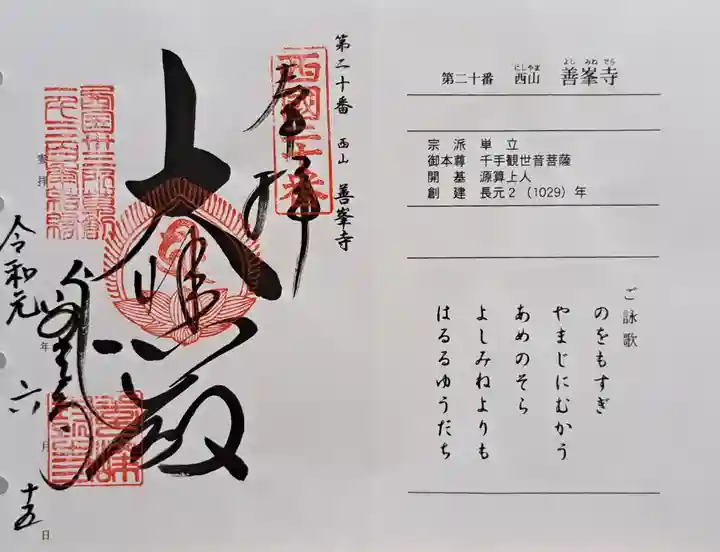 第二十番 西山 善峯寺
奉拝
西國二十番
大悲殿
善峯寺
令和元年六月十五日
にしやま よしみねでら
第二十番 西山 善峯寺
宗派 単立
御本尊 千手観世音菩薩
開基 源算上人
創建 長元2(1029)年
ご詠歌
のをもすぎ
やまじにむかう
あめのそら
よしみねよりも
はるるゆうだち